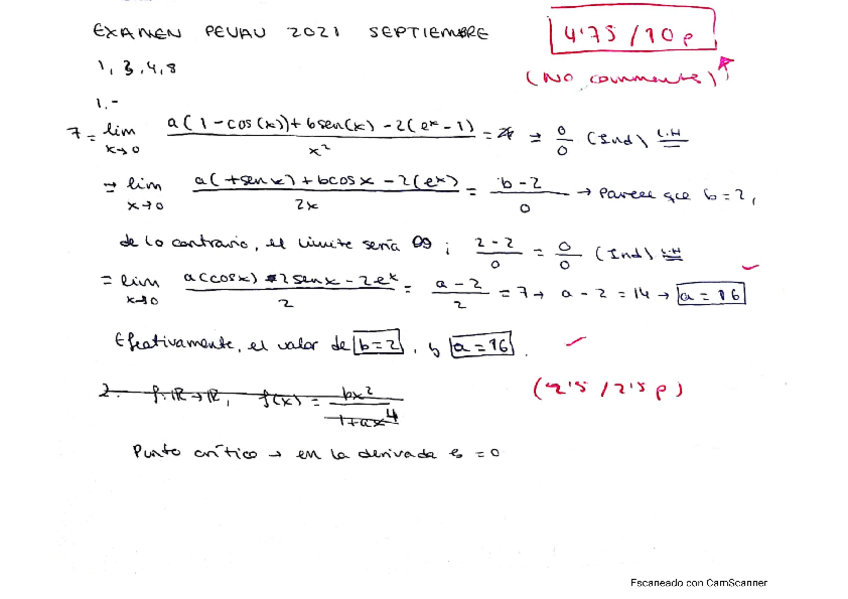 EXAMEN PEVAU 2021 SEPTIEMBRE
4'75 / 10 p
(No comments)
1, 3, 4, 8
1.-
7 = lim x→0 a(1-cos(x))+bsen(x)-2(eˣ-1) / x² = ⇒ 0/0 (Ind) L.H
⇒ lim x→0 a(+senx)+bcosx-2(eˣ) / 2x = b-2 / 0 → Parece que b=2,
de lo contrario, el límite sería ∞; 2-2 / 0 = 0/0 (Ind) L.H
= lim x→0 a(cosx)-2senx-2eˣ / 2 = a-2 / 2 = 7 → a-2=14 → a=16
Efectivamente, el valor de b=2, y a=16.
2.- f:ℝ→ℝ, f(x) = bx² / 1+ax⁴
(2'5 / 2'5 p)
Punto crítico → en la derivada es =0
Escaneado con CamScanner